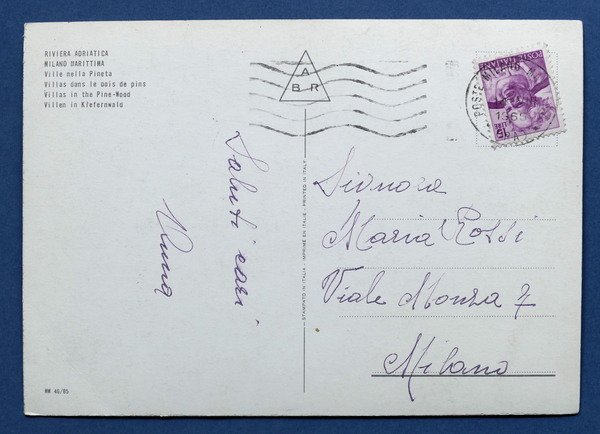 RIVIERA ADRIATICA
MILANO MARITTIMA
Ville nella Pineta
Villas dans le bois de pins
Villas in the Pine-Wood
Villen in Kiefernwald
A
B R
POSTE ITALIANE
LIRE 15
POSTE
1965
Saluti cari
STAMPATO IN ITALIA - IMPRIMÉ EN ITALIE - PRINTED IN ITALY
Signora
Maria Rossi
Viale Monza 7
Milano
MM 40/85